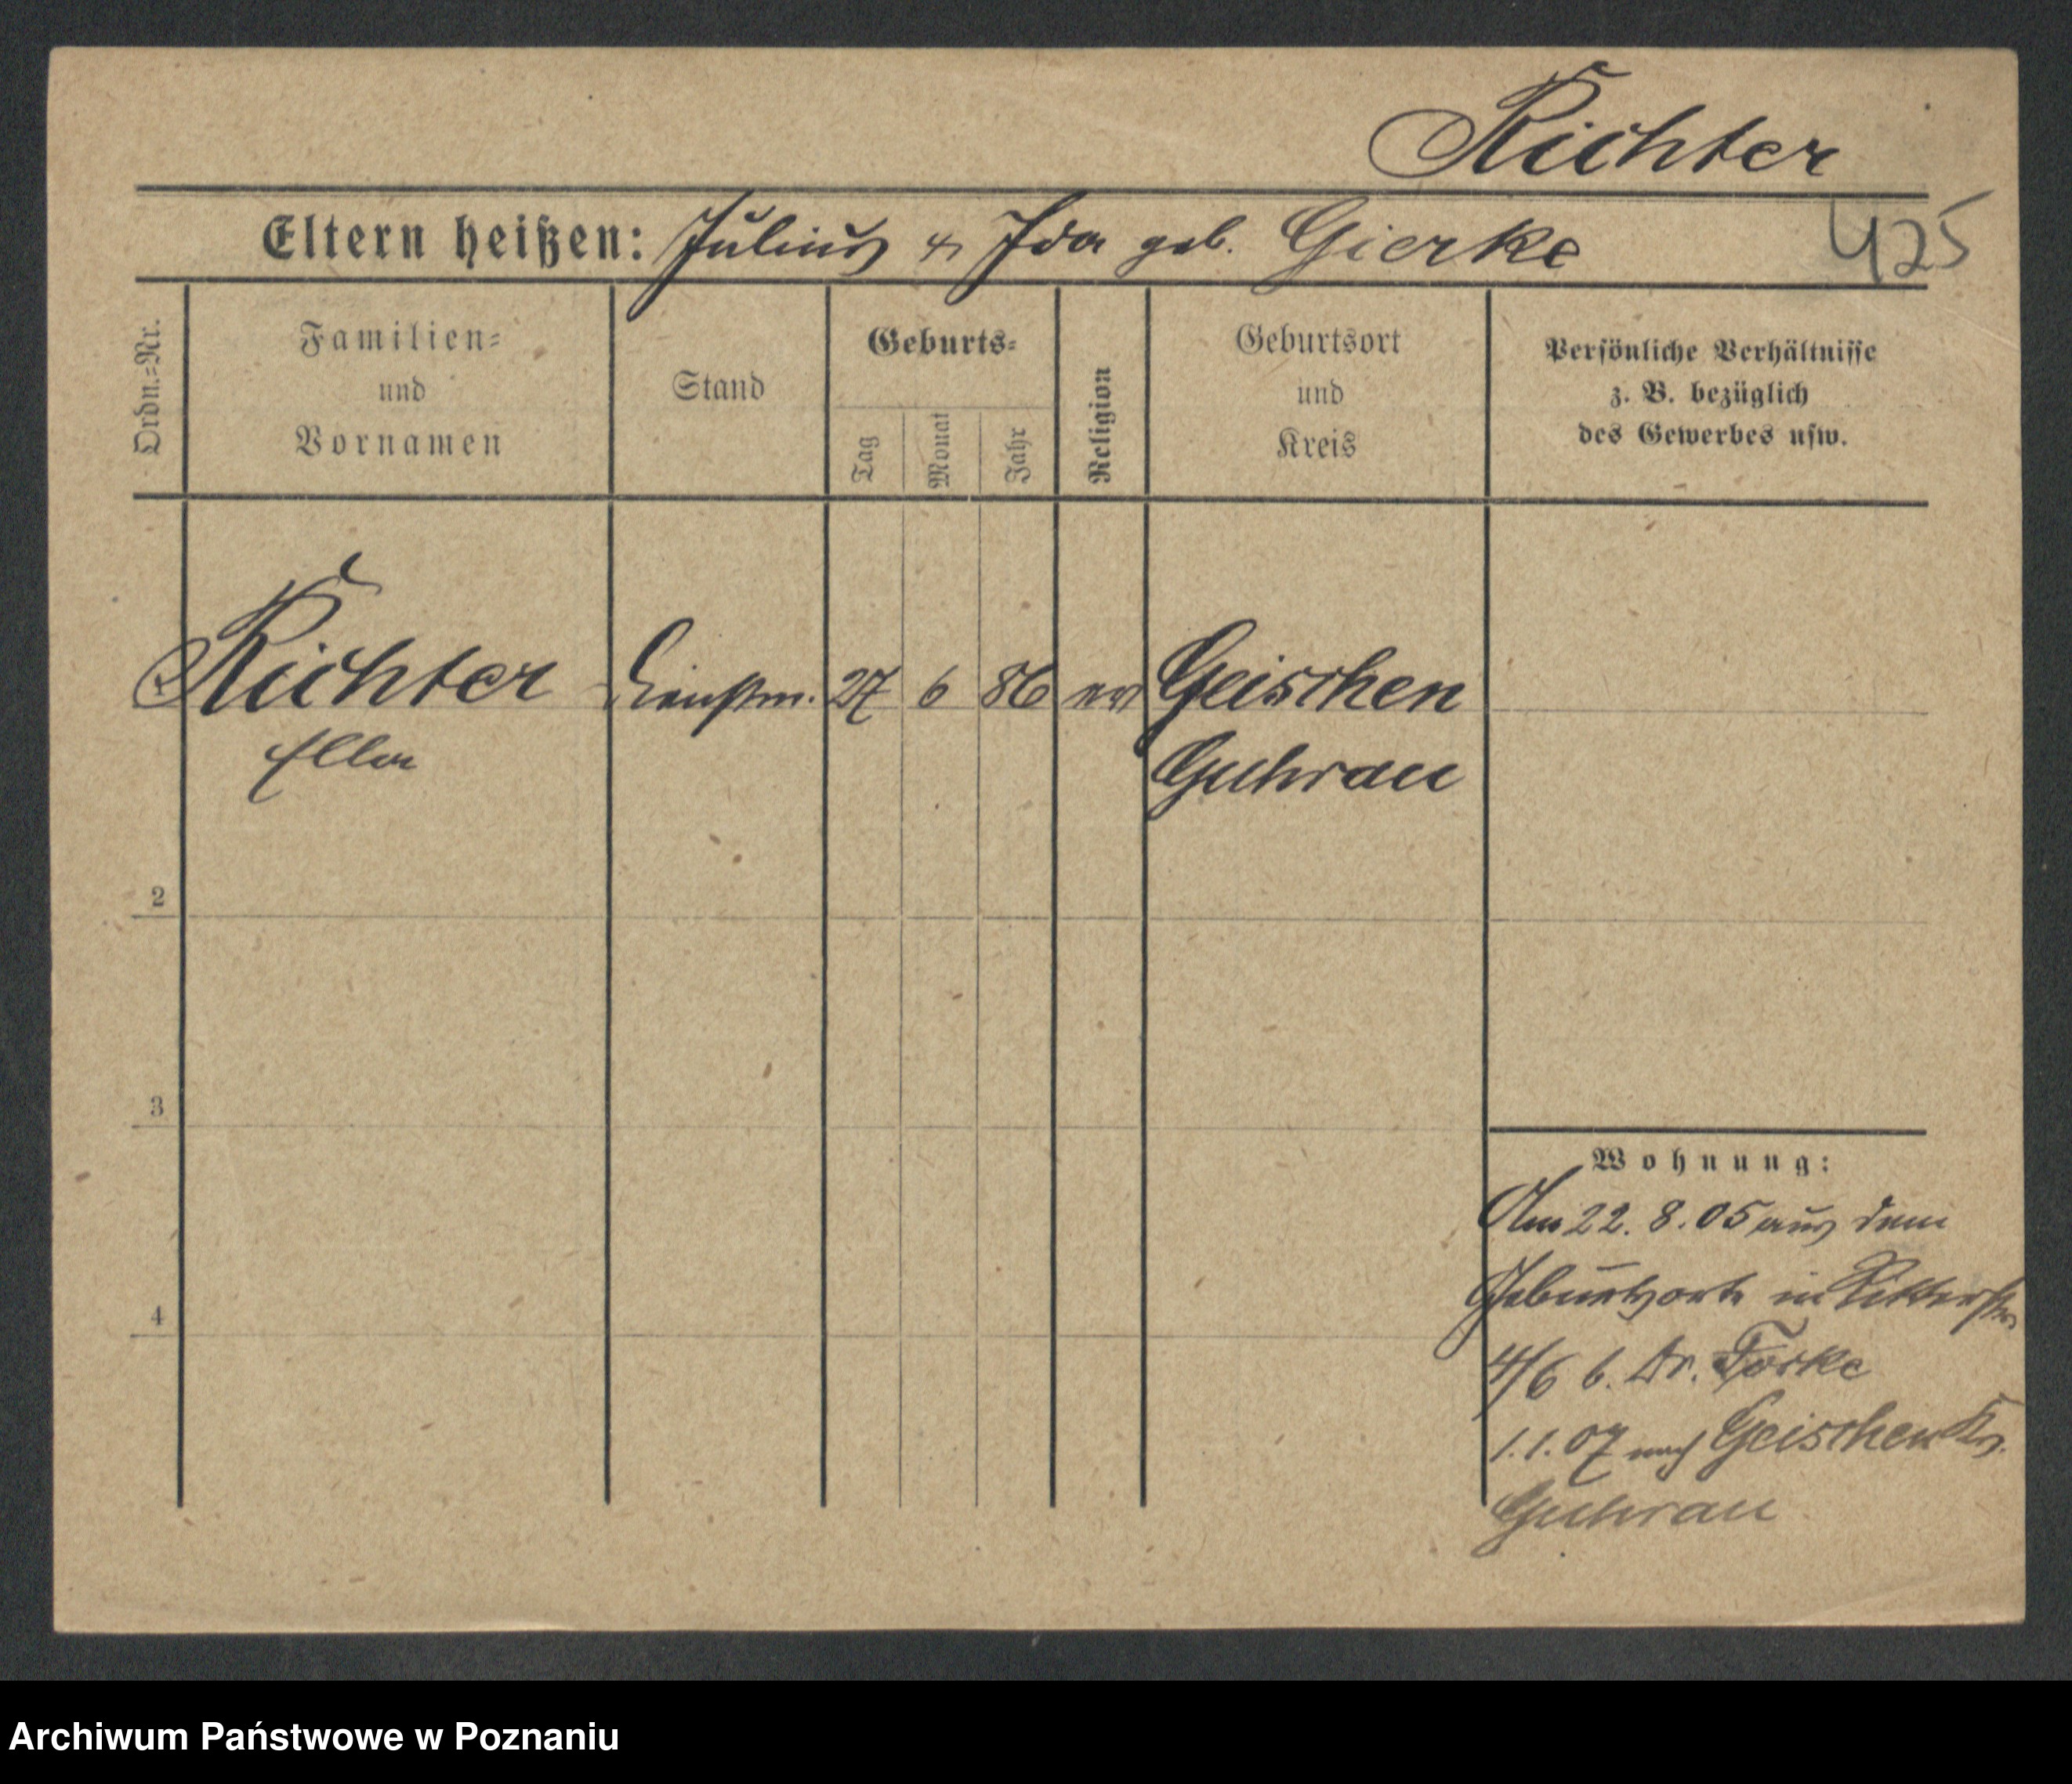 Richter
Eltern heißen: Julius & Ida geb. Gierke
425
Ordn.=Nr.
Familien=
und
Vornamen
Stand
Geburts=
Tag
Monat
Jahr
Religion
Geburtsort
und
Kreis
Persönliche Verhältnisse
z. B. bezüglich
des Gewerbes usw.
Richter Dienstm. 27 6 86 ev Geischen
Ella Guhrau
2
3
4
Wohnung:
Am 22. 8. 05 aus dem
Geburtsorte in Ritterstr
4/6 b. Dr. Torke
1.1.07 nach Geischen Kr.
Guhrau
Archiwum Państwowe w Poznaniu